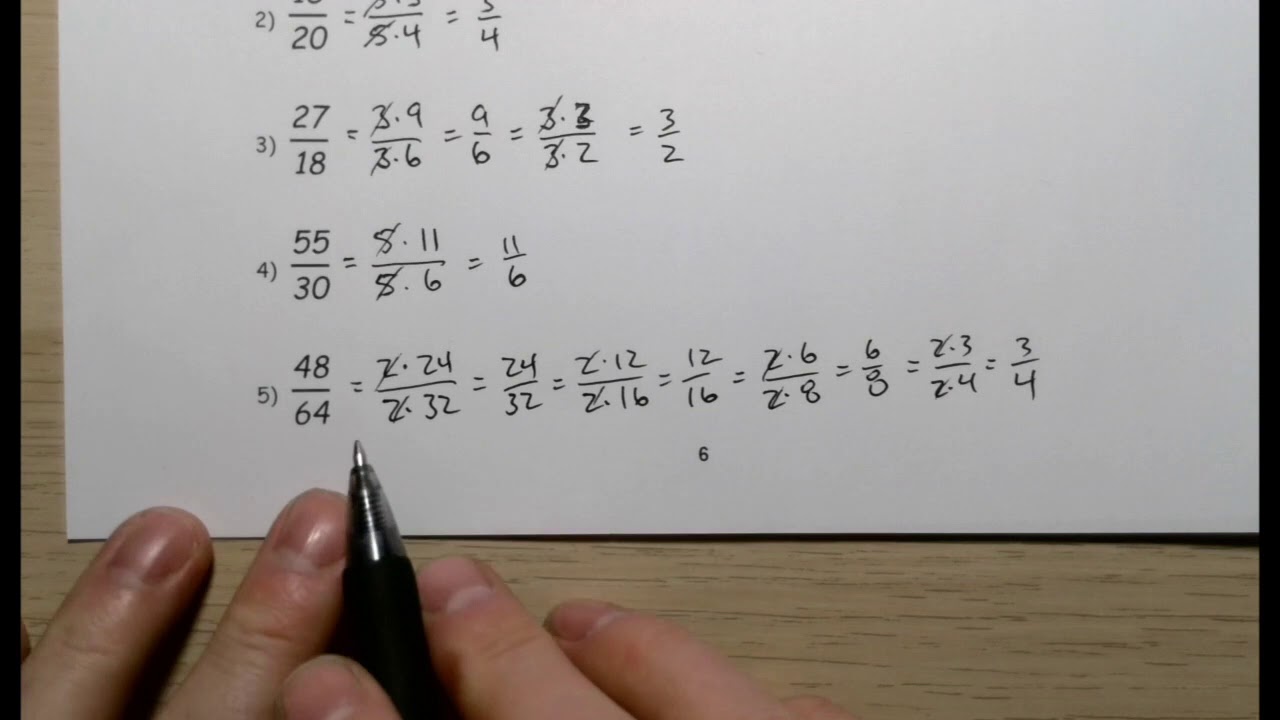 2) /20 = /5·4 = 3/4
3) 27/18 = 3·9/3·6 = 9/6 = 3·3/3·2 = 3/2
4) 55/30 = 5·11/5·6 = 11/6
5) 48/64 = 2·24/2·32 = 24/32 = 2·12/2·16 = 12/16 = 2·6/2·8 = 6/8 = 2·3/2·4 = 3/4
6